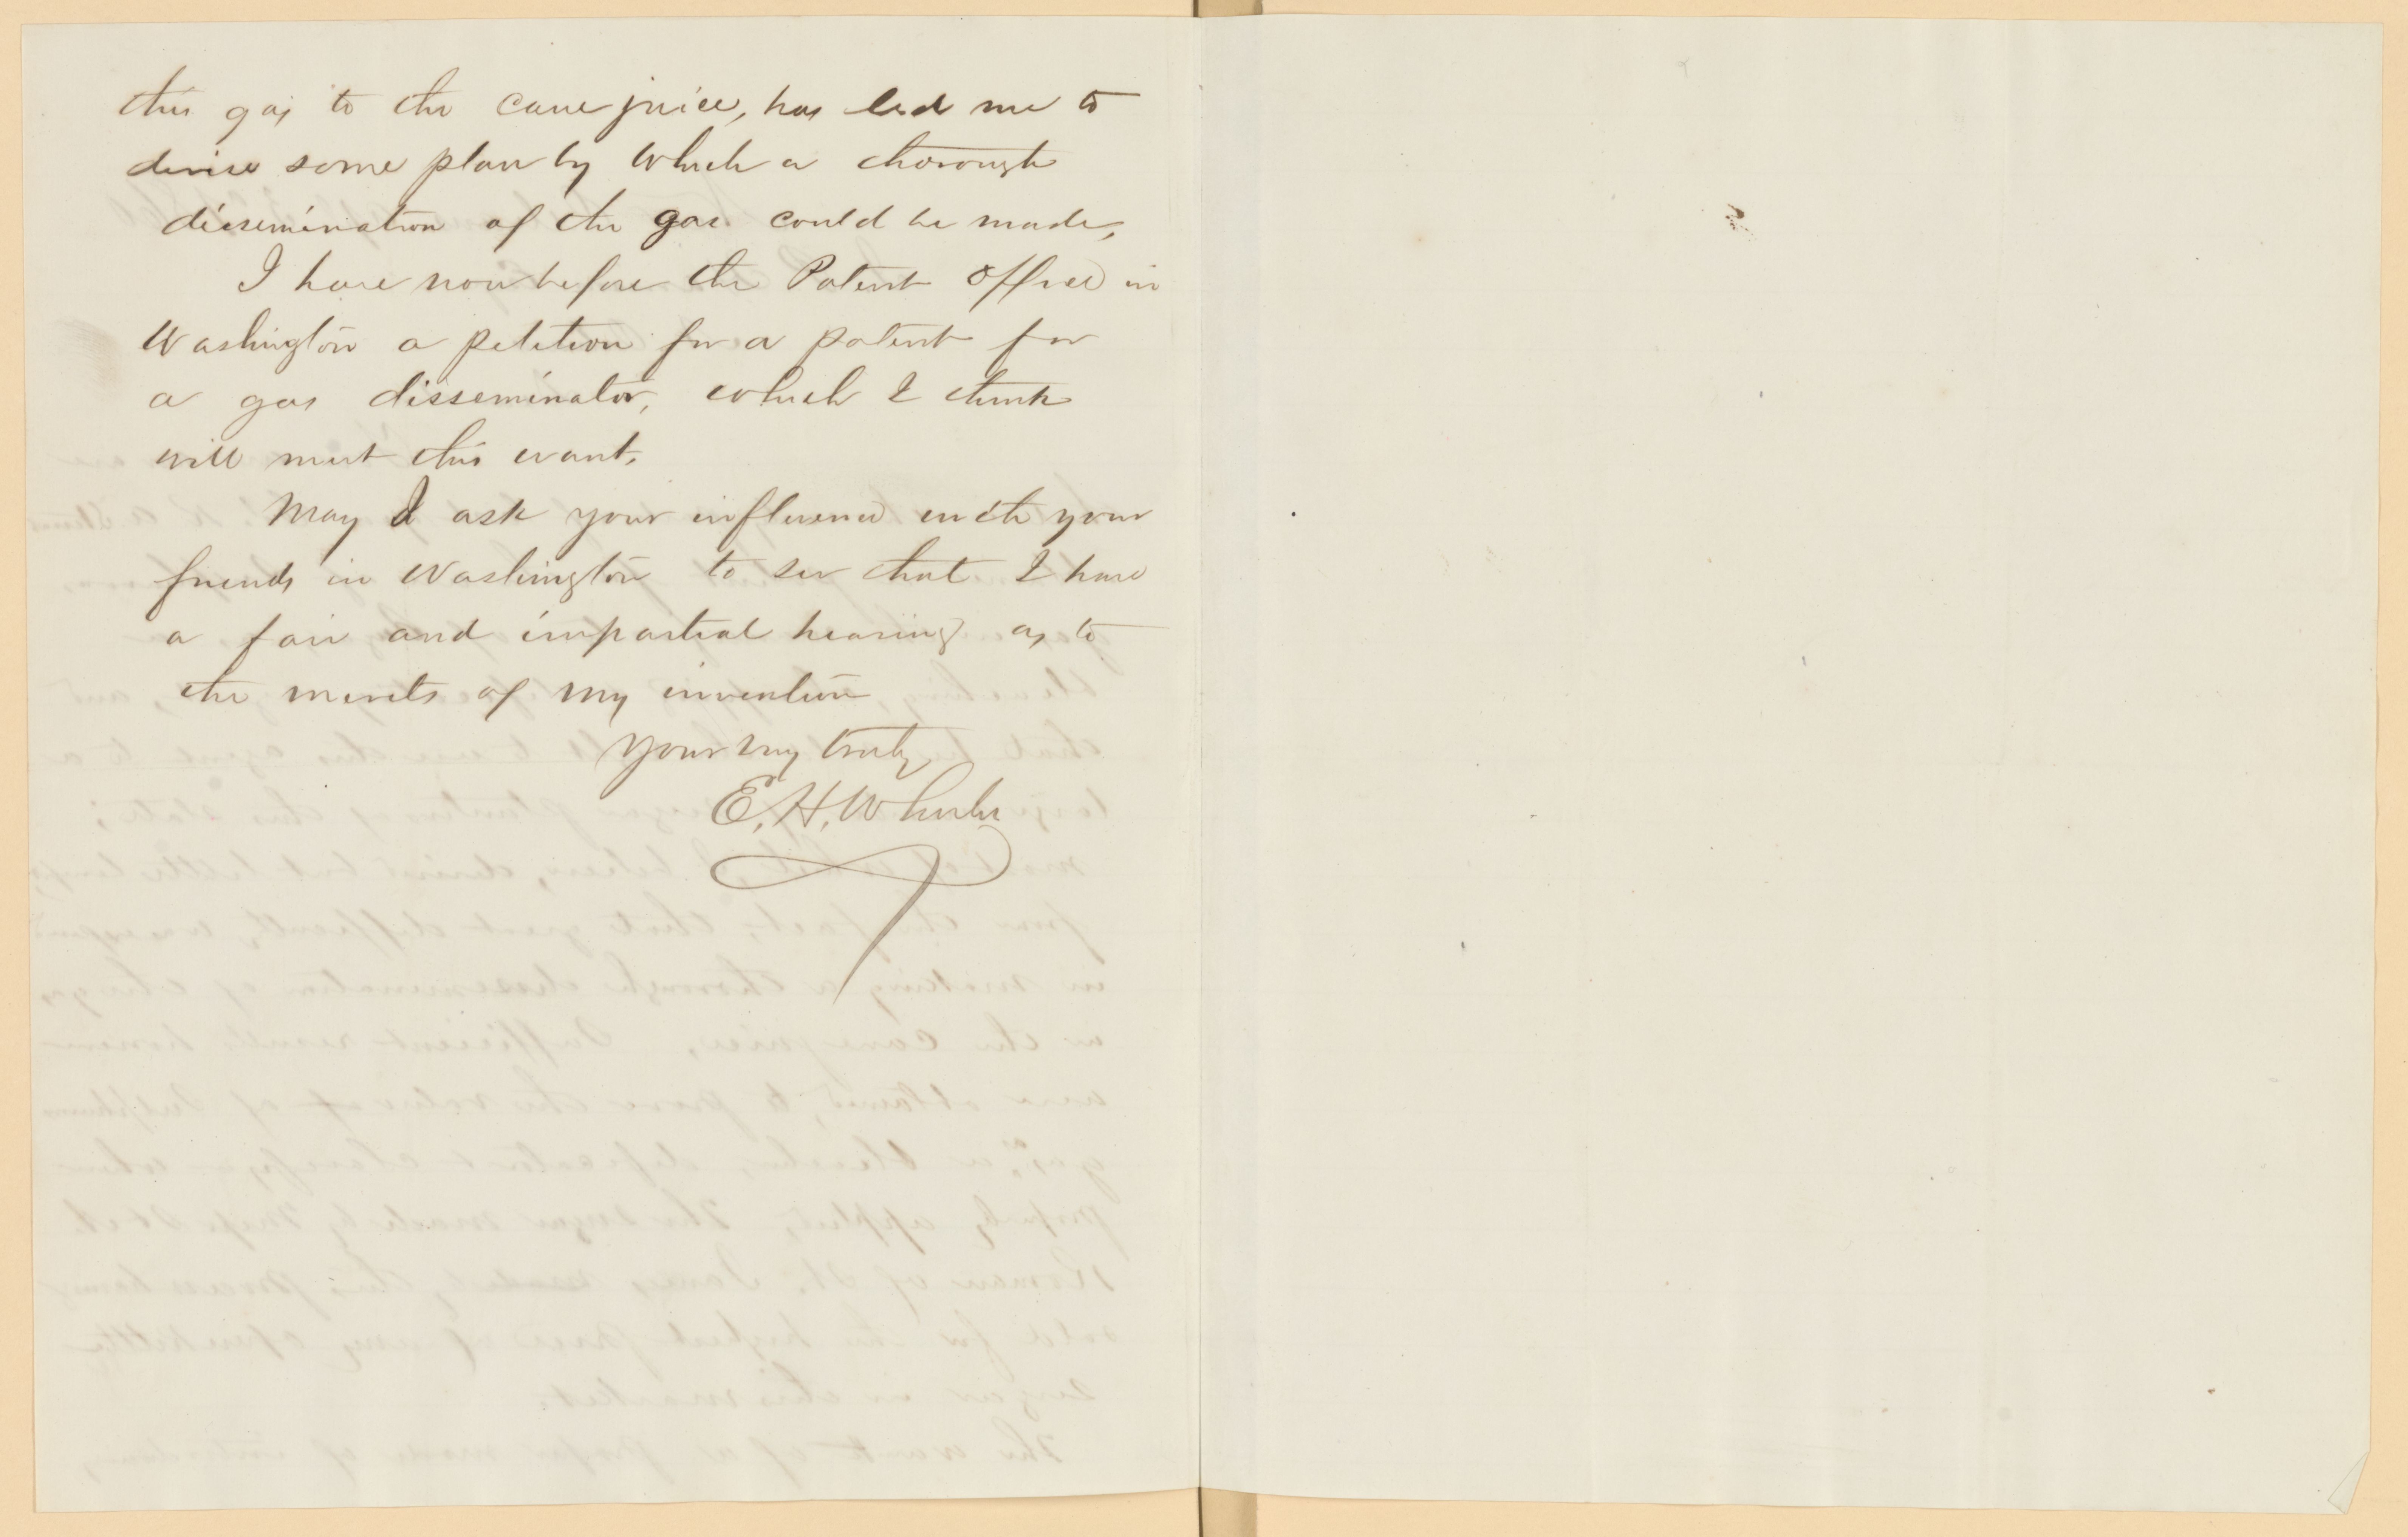 this gas to the cane juice, has led me to
devise some plan by which a thorough
dissemination of the gas could be made,
I have now before the Patent Office in
Washington a petition for a patent for
a gas disseminator, which I think
will meet this want.
May I ask your influence with your
friends in Washington to see that I have
a fair and impartial hearing as to
the merits of my invention
Your very truly
E. H. Wheeler